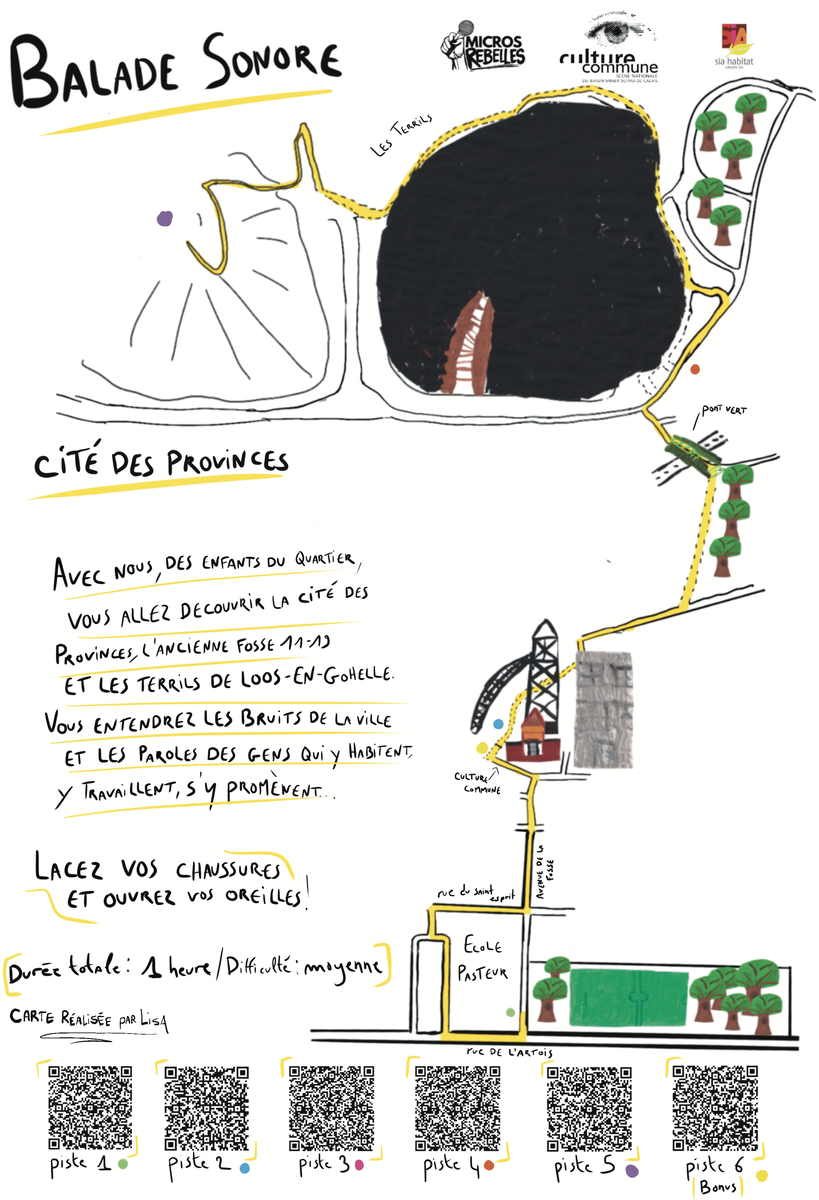 BALADE SONORE
MICROS
REBELLES
culture
commune
SCÈNE NATIONALE
DU BASSIN MINIER DU PAS DE CALAIS
SIA
sia habitat
LES TERRILS
PONT VERT
CITÉ DES PROVINCES
AVEC NOUS, DES ENFANTS DU QUARTIER,
VOUS ALLEZ DECOUVRIR LA CITÉ DES
PROVINCES, L'ANCIENNE FOSSE 11-19
ET LES TERRILS DE LOOS-EN-GOHELLE.
VOUS ENTENDREZ LES BRUITS DE LA VILLE
ET LES PAROLES DES GENS QUI Y HABITENT,
Y TRAVAILLENT, S'Y PROMÈNENT...
CULTURE
COMMUNE
LACEZ VOS CHAUSSURES
ET OUVREZ VOS OREILLES!
AVENUE DE LA
FOSSE
rue du Saint
esprit
ECOLE
PASTEUR
Durée totale: 1 heure/Difficulté: moyenne
CARTE RÉALISÉE PAR LISA
rue DE L'ARTOIS
piste 1
piste 2
piste 3
piste 4
piste 5
piste 6
(Bonus)